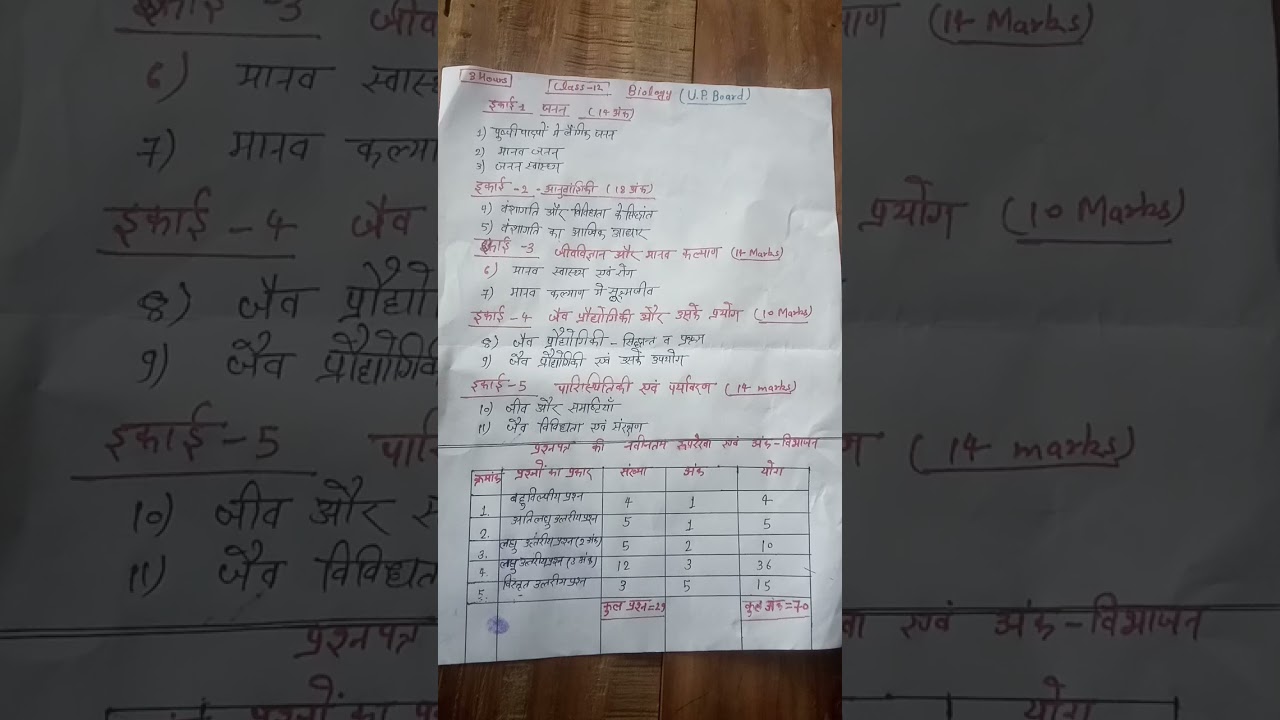 3 Hours Class-12 Biology (U.P. Board)
इकाई-1 जनन (14 अंक)
1) पुष्पी पादपों में लैंगिक जनन
2) मानव जनन
3) जनन स्वास्थ्य
इकाई-2 - आनुवंशिकी (18 अंक)
4) वंशागति और विविधता के सिद्धांत
5) वंशागति का आणविक आधार
इकाई-3 जीवविज्ञान और मानव कल्याण (14 Marks)
6) मानव स्वास्थ्य एवं रोग
7) मानव कल्याण में सूक्ष्मजीव
इकाई-4 जैव प्रौद्योगिकी और उसके प्रयोग (10 Marks)
8) जैव प्रौद्योगिकी - सिद्धान्त व प्रक्रम
9) जैव प्रौद्योगिकी एवं उसके उपयोग
इकाई-5 पारिस्थितिकी एवं पर्यावरण (14 marks)
10) जीव और समष्टियाँ
11) जैव विविधता एवं संरक्षण
प्रश्नपत्र की नवीनतम रूपरेखा एवं अंक-विभाजन
क्रमांक प्रश्नों का प्रकार संख्या अंक योग
1. बहुविकल्पीय प्रश्न 4 1 4
2. अतिलघु उत्तरीय प्रश्न 5 1 5
3. लघु उत्तरीय प्रश्न (2 अंक) 5 2 10
4. लघु उत्तरीय प्रश्न (3 अंक) 12 3 36
5. विस्तृत उत्तरीय प्रश्न 3 5 15
कुल प्रश्न=29 कुल अंक=70